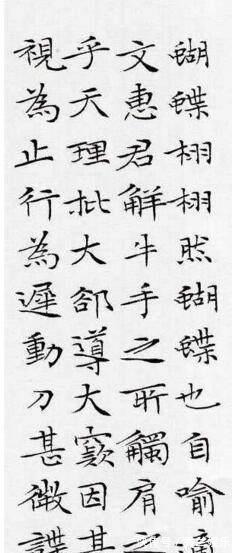 蝴蝶栩栩然蝴蝶也自喻
文惠君觧牛手之所觸肩之
乎天理批大郤導大窾因其
視為止行為遲動刀甚微